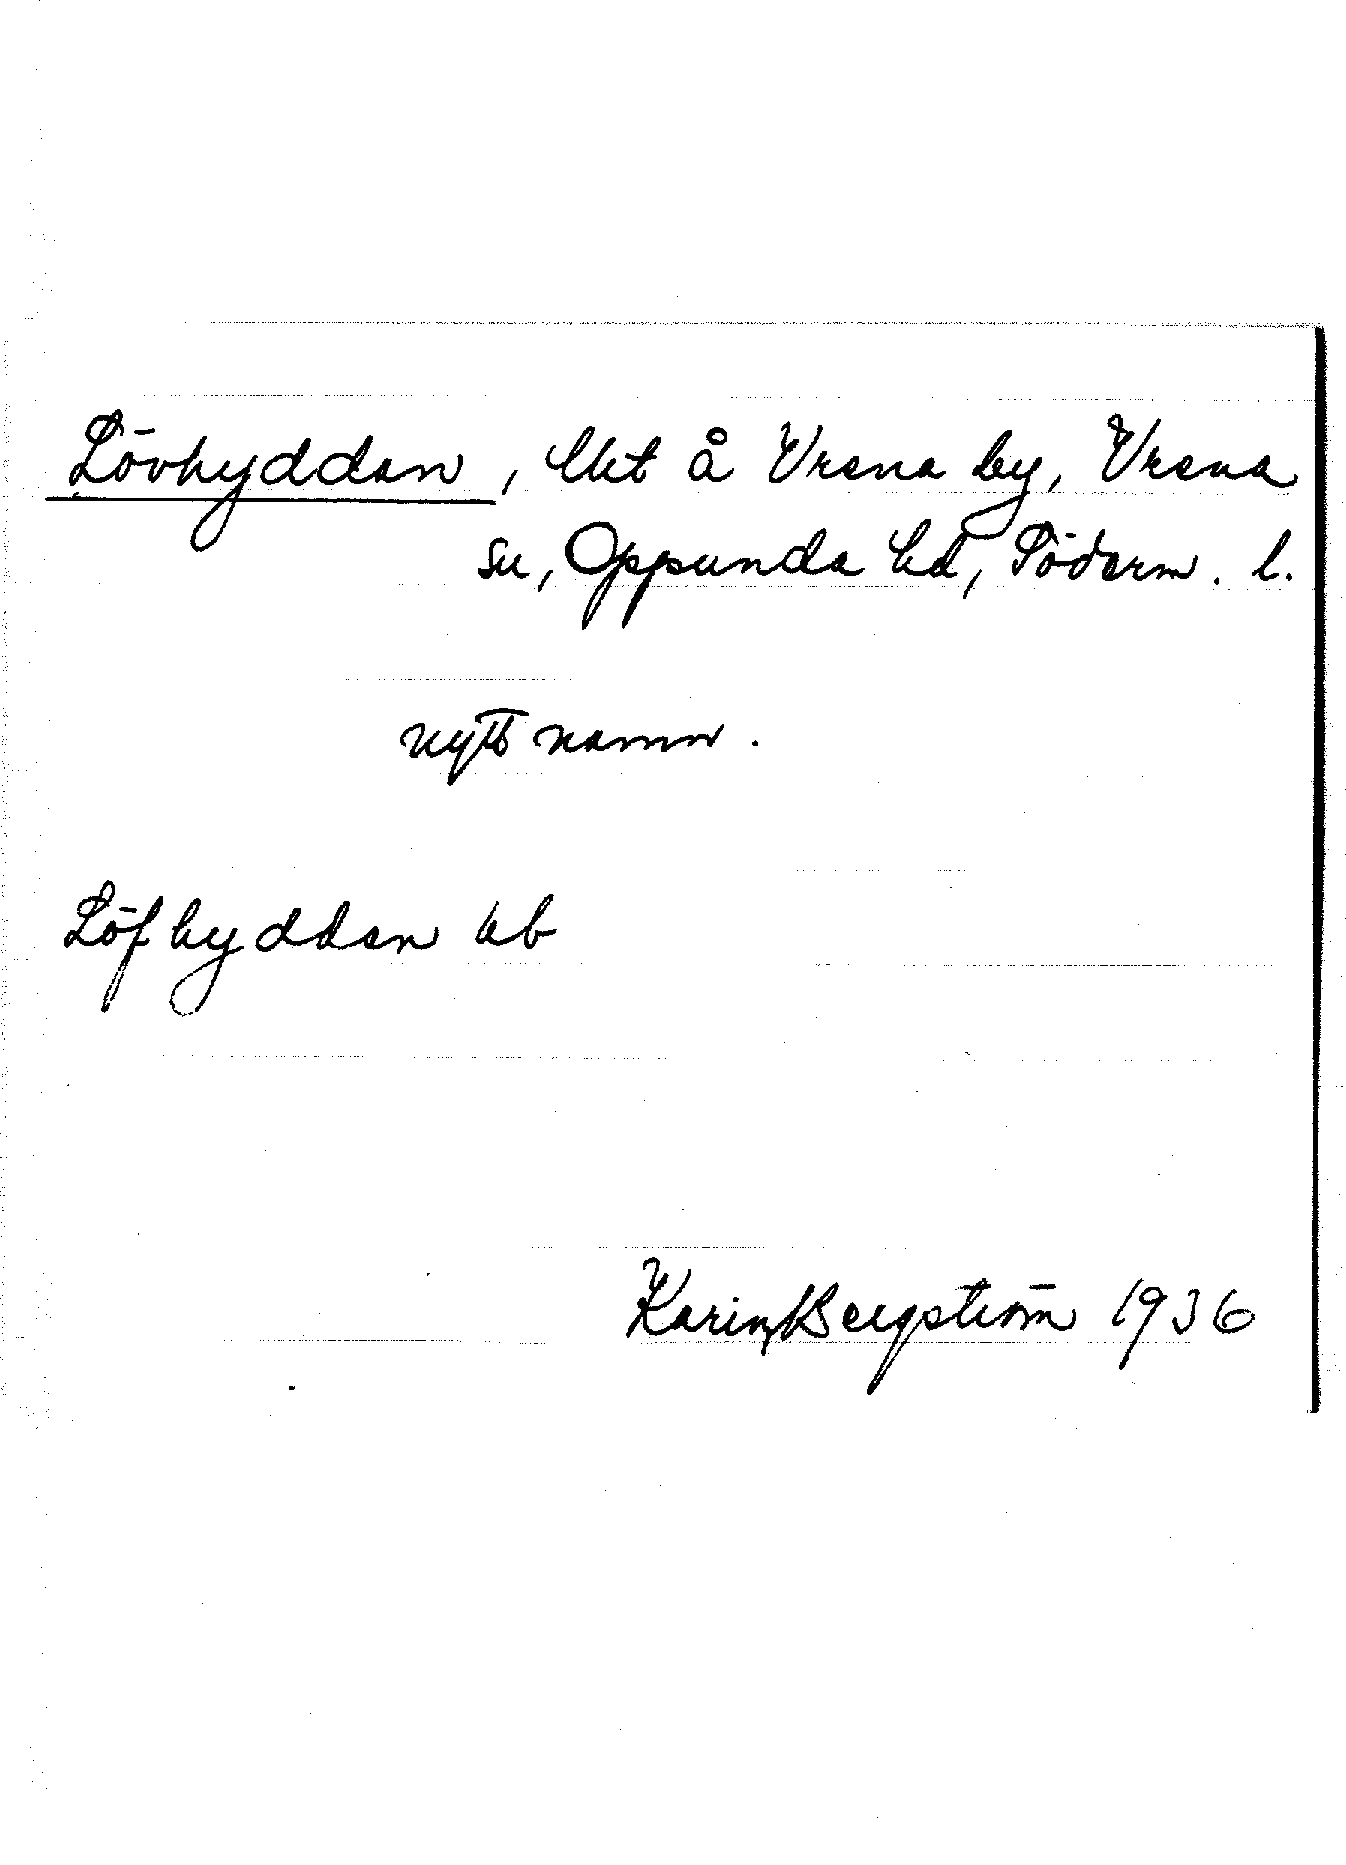 Lövhyddan, lht å Vrena by, Vrena
sn, Oppunda hd, Söderm. l.
nytt namn.
Löfhyddan kb
Karin Bergström 1936